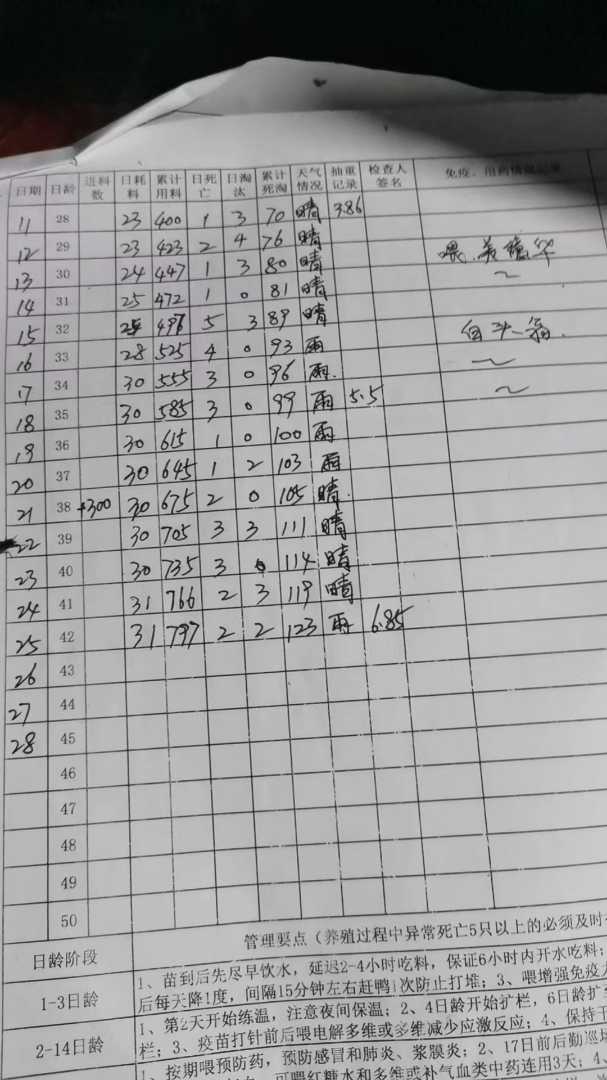 日期 日龄 进料数 日耗料 累计用料 日死亡 日淘汰 累计死淘 天气情况 抽重记录 检查人签名 免疫、用药情况记录
11 28 23 400 1 3 70 晴 386
12 29 23 423 2 4 76 晴
13 30 24 447 1 3 80 晴
14 31 25 472 1 0 81 晴
15 32 496 5 3 89 晴
16 33 28 525 4 0 93 雨 白头翁.
17 34 30 555 3 0 96 雨. ~
18 35 30 585 3 0 99 雨 5.5 ~
19 36 30 615 1 0 100 雨
20 37 30 645 1 2 103 雨
21 38 +300 30 675 2 0 105 晴.
22 39 30 705 3 3 111 晴
23 40 30 735 3 0 114 晴
24 41 31 766 2 3 119 晴
25 42 31 797 2 2 123 雨 6.85
26 43
27 44
28 45
46
47
48
49
50
日龄阶段 管理要点（养殖过程中异常死亡5只以上的必须及时
1-3日龄 1、苗到后先尽早饮水，延迟2-4小时吃料，保证6小时内开水吃料；
后每天降1度，间隔15分钟左右赶鸭1次防止打堆；3、喂增强免疫
2-14日龄 1、第2天开始练温，注意夜间保温；2、4日龄开始扩栏，6日龄扩
栏；3、疫苗打针前后喂电解多维或多维减少应激反应；4、保持干
1、按期喂预防药，预防感冒和肺炎、浆膜炎；2、17日前后勤巡
可喂红糖水和多维或补气血类中药连用3天；4、